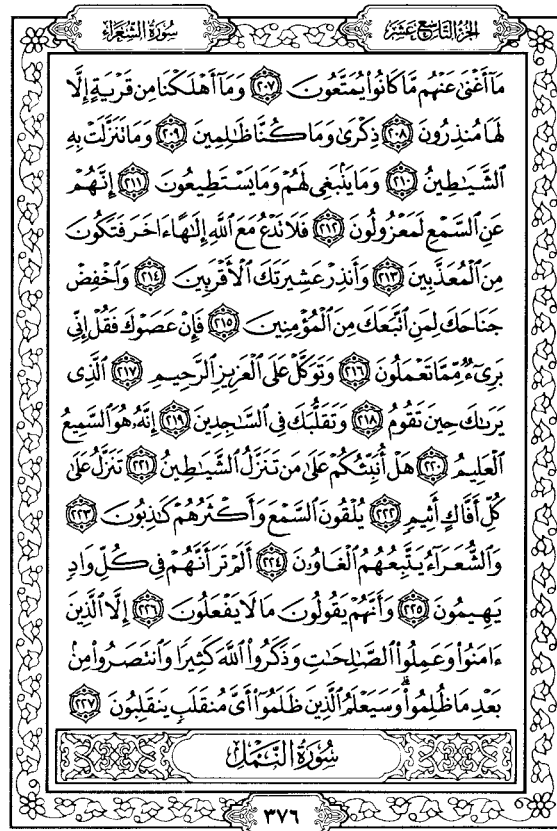 سُورَةُ الشُّعَرَاءِ
الجُزْءُ التَّاسِعَ عَشَرَ
مَآ أَغْنَىٰ عَنْهُم مَّا كَانُوا۟ يُمَتَّعُونَ ٢٠٧ وَمَآ أَهْلَكْنَا مِن قَرْيَةٍ إِلَّا
لَهَا مُنذِرُونَ ٢٠٨ ذِكْرَىٰ وَمَا كُنَّا ظَـٰلِمِينَ ٢٠٩ وَمَا تَنَزَّلَتْ بِهِ
ٱلشَّيَـٰطِينُ ٢١٠ وَمَا يَنۢبَغِى لَهُمْ وَمَا يَسْتَطِيعُونَ ٢١١ إِنَّهُمْ
عَنِ ٱلسَّمْعِ لَمَعْزُولُونَ ٢١٢ فَلَا تَدْعُ مَعَ ٱللَّهِ إِلَـٰهًا ءَاخَرَ فَتَكُونَ
مِنَ ٱلْمُعَذَّبِينَ ٢١٣ وَأَنذِرْ عَشِيرَتَكَ ٱلْأَقْرَبِينَ ٢١٤ وَٱخْفِضْ
جَنَاحَكَ لِمَنِ ٱتَّبَعَكَ مِنَ ٱلْمُؤْمِنِينَ ٢١٥ فَإِنْ عَصَوْكَ فَقُلْ إِنِّى
بَرِىٓءٌ مِّمَّا تَعْمَلُونَ ٢١٦ وَتَوَكَّلْ عَلَى ٱلْعَزِيزِ ٱلرَّحِيمِ ٢١٧ ٱلَّذِى
يَرَىٰكَ حِينَ تَقُومُ ٢١٨ وَتَقَلُّبَكَ فِى ٱلسَّـٰجِدِينَ ٢١٩ إِنَّهُۥ هُوَ ٱلسَّمِيعُ
ٱلْعَلِيمُ ٢٢٠ هَلْ أُنَبِّئُكُمْ عَلَىٰ مَن تَنَزَّلُ ٱلشَّيَـٰطِينُ ٢٢١ تَنَزَّلُ عَلَىٰ
كُلِّ أَفَّاكٍ أَثِيمٍ ٢٢٢ يُلْقُونَ ٱلسَّمْعَ وَأَكْثَرُهُمْ كَـٰذِبُونَ ٢٢٣
وَٱلشُّعَرَآءُ يَتَّبِعُهُمُ ٱلْغَاوُۥنَ ٢٢٤ أَلَمْ تَرَ أَنَّهُمْ فِى كُلِّ وَادٍ
يَهِيمُونَ ٢٢٥ وَأَنَّهُمْ يَقُولُونَ مَا لَا يَفْعَلُونَ ٢٢٦ إِلَّا ٱلَّذِينَ
ءَامَنُوا۟ وَعَمِلُوا۟ ٱلصَّـٰلِحَـٰتِ وَذَكَرُوا۟ ٱللَّهَ كَثِيرًا وَٱنتَصَرُوا۟ مِنۢ
بَعْدِ مَا ظُلِمُوا۟ ۗ وَسَيَعْلَمُ ٱلَّذِينَ ظَلَمُوٓا۟ أَىَّ مُنقَلَبٍ يَنقَلِبُونَ ٢٢٧
سُورَةُ النَّمْلِ
٣٧٦